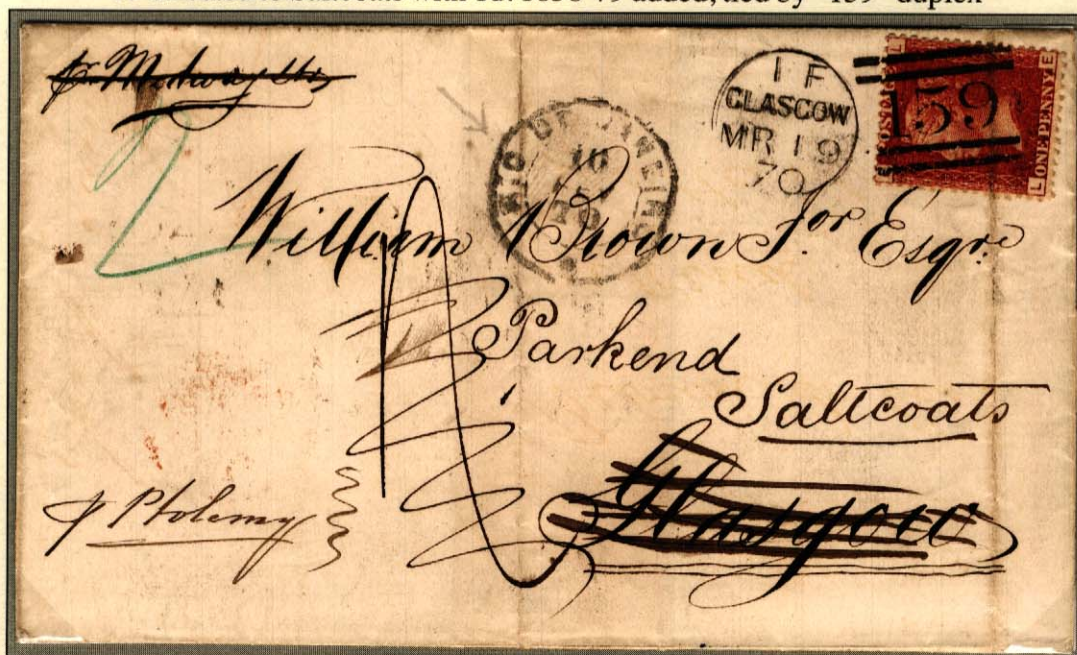 added, tied by "159" duplex
1 F
GLASGOW
MR 19
70
159
E POSTAGE L
L ONE PENNY E
RIO DE JANEIRO
2
William Brown Jor Esqre
Parkend
Saltcoats
Glasgow
p Ptolemy